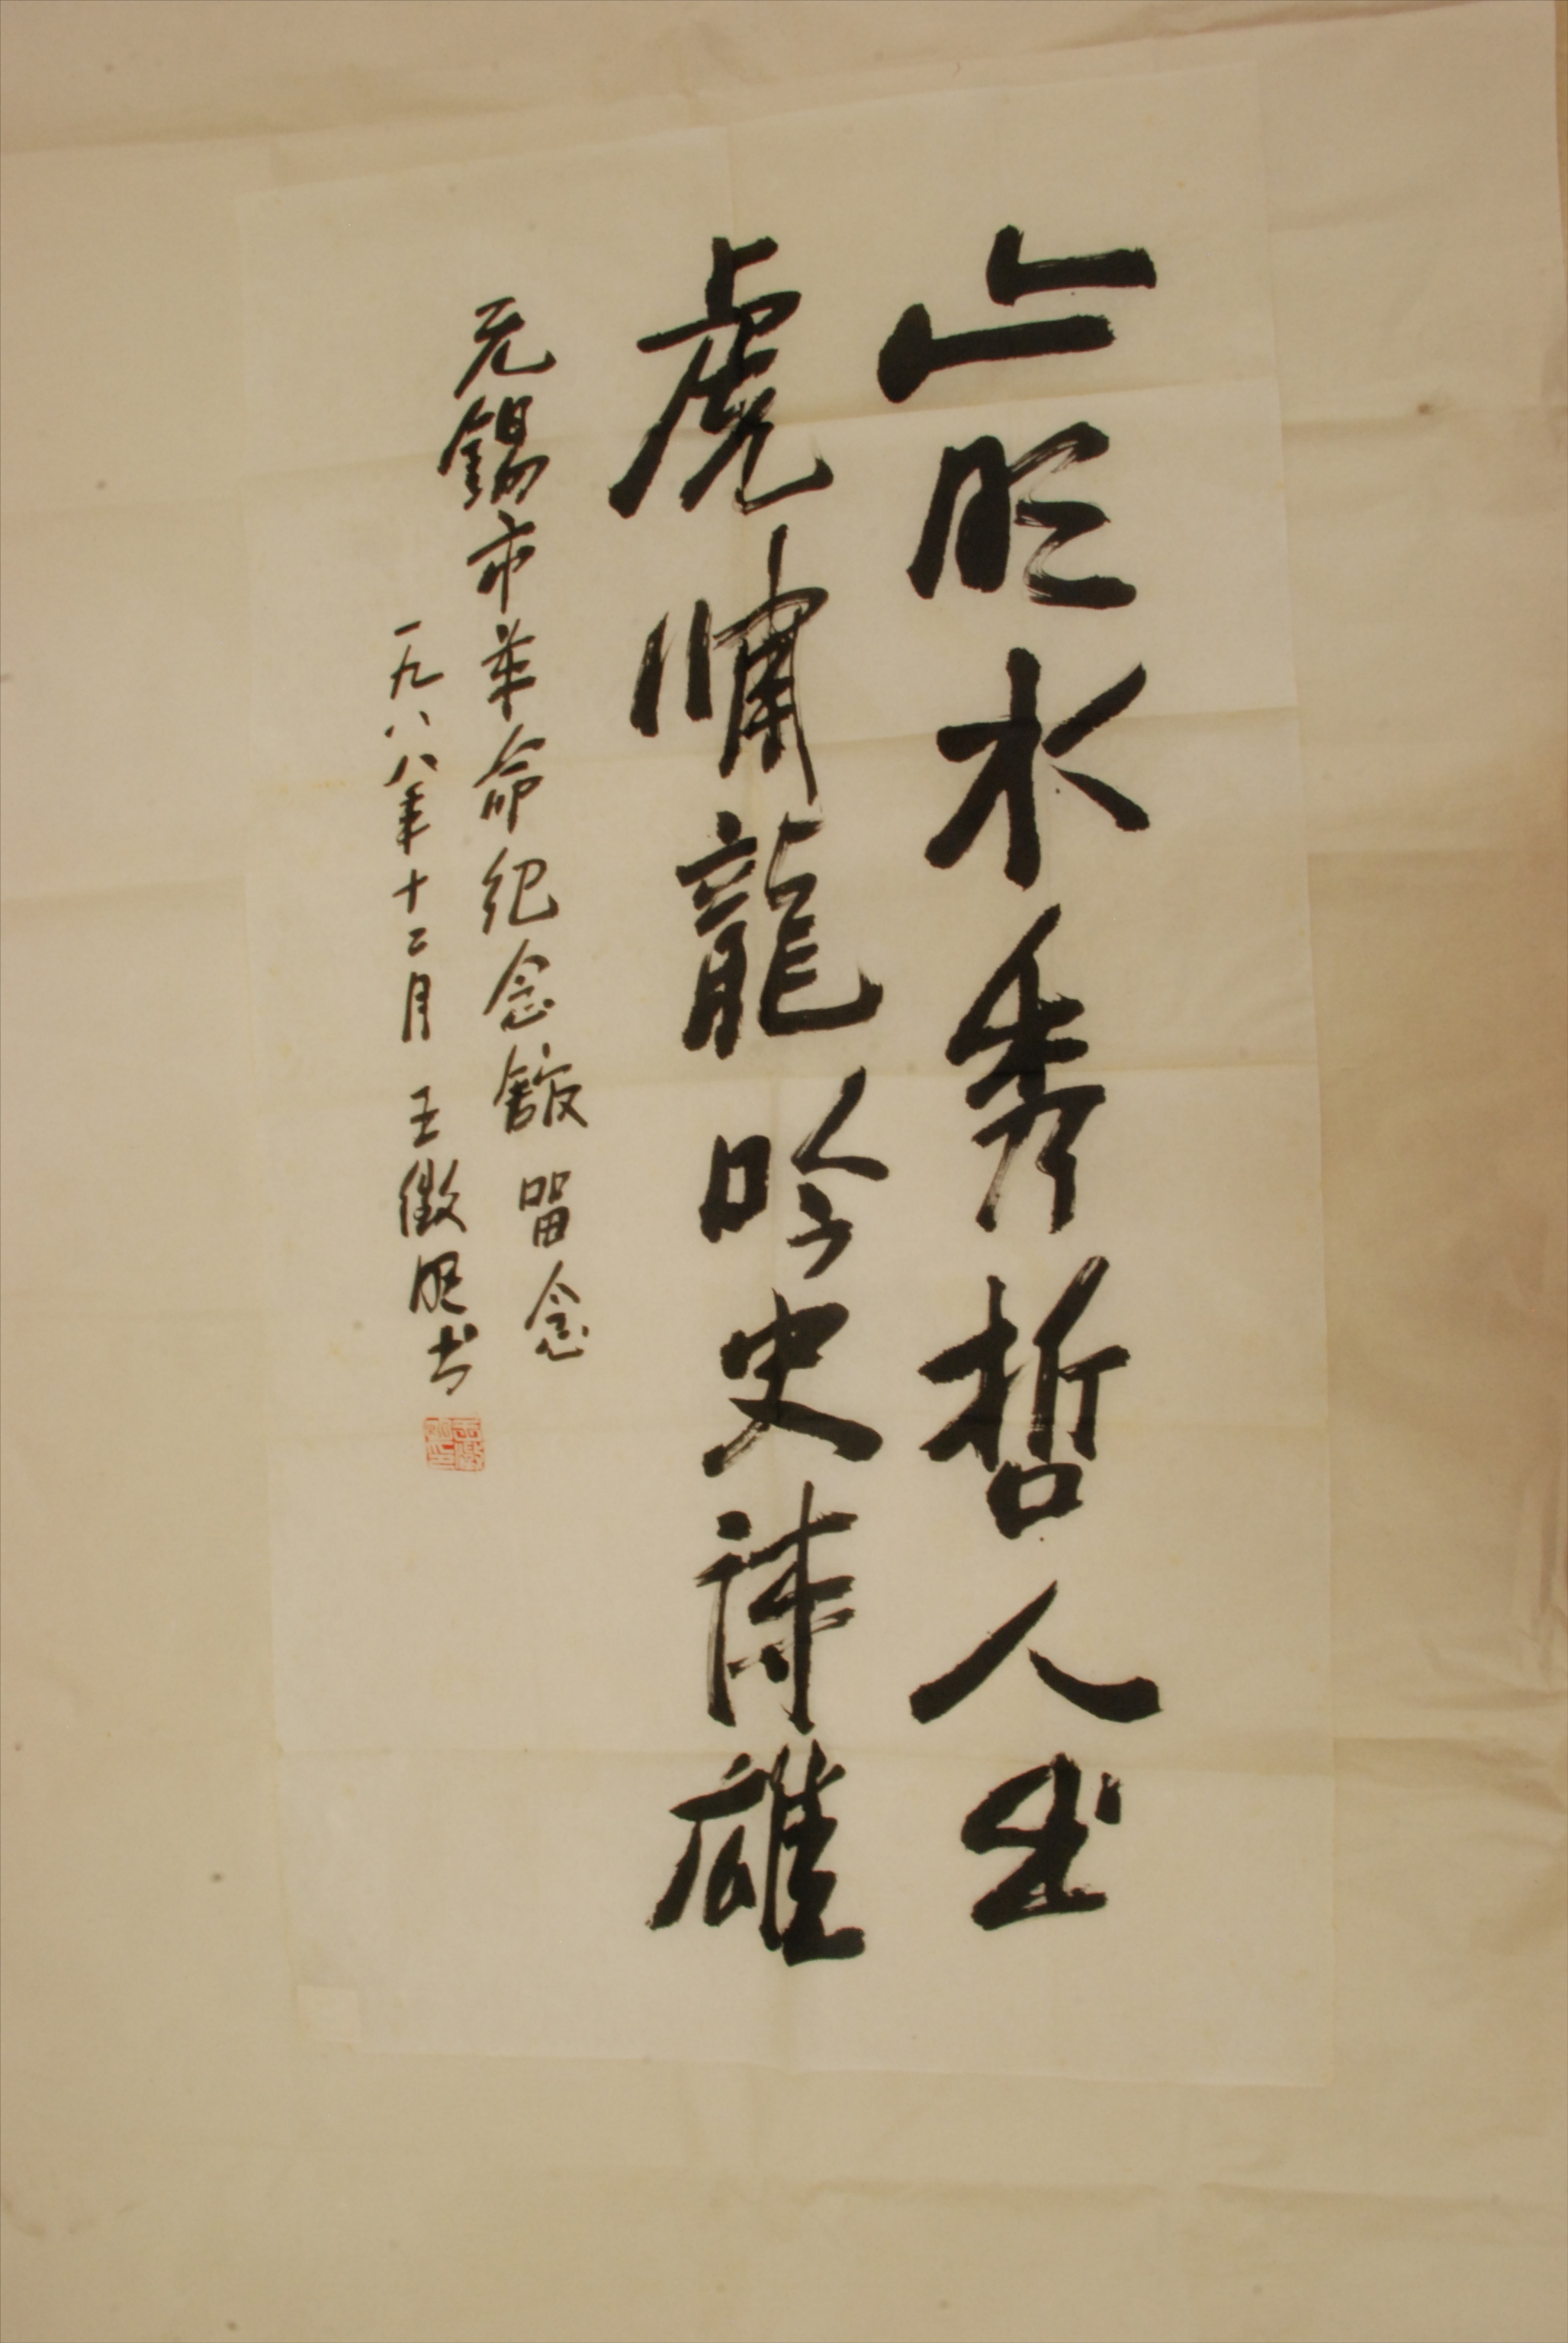 山明水秀哲人出
虎啸龍吟史诗雄
无锡市革命纪念馆留念
一九八八年十二月 王徵明书